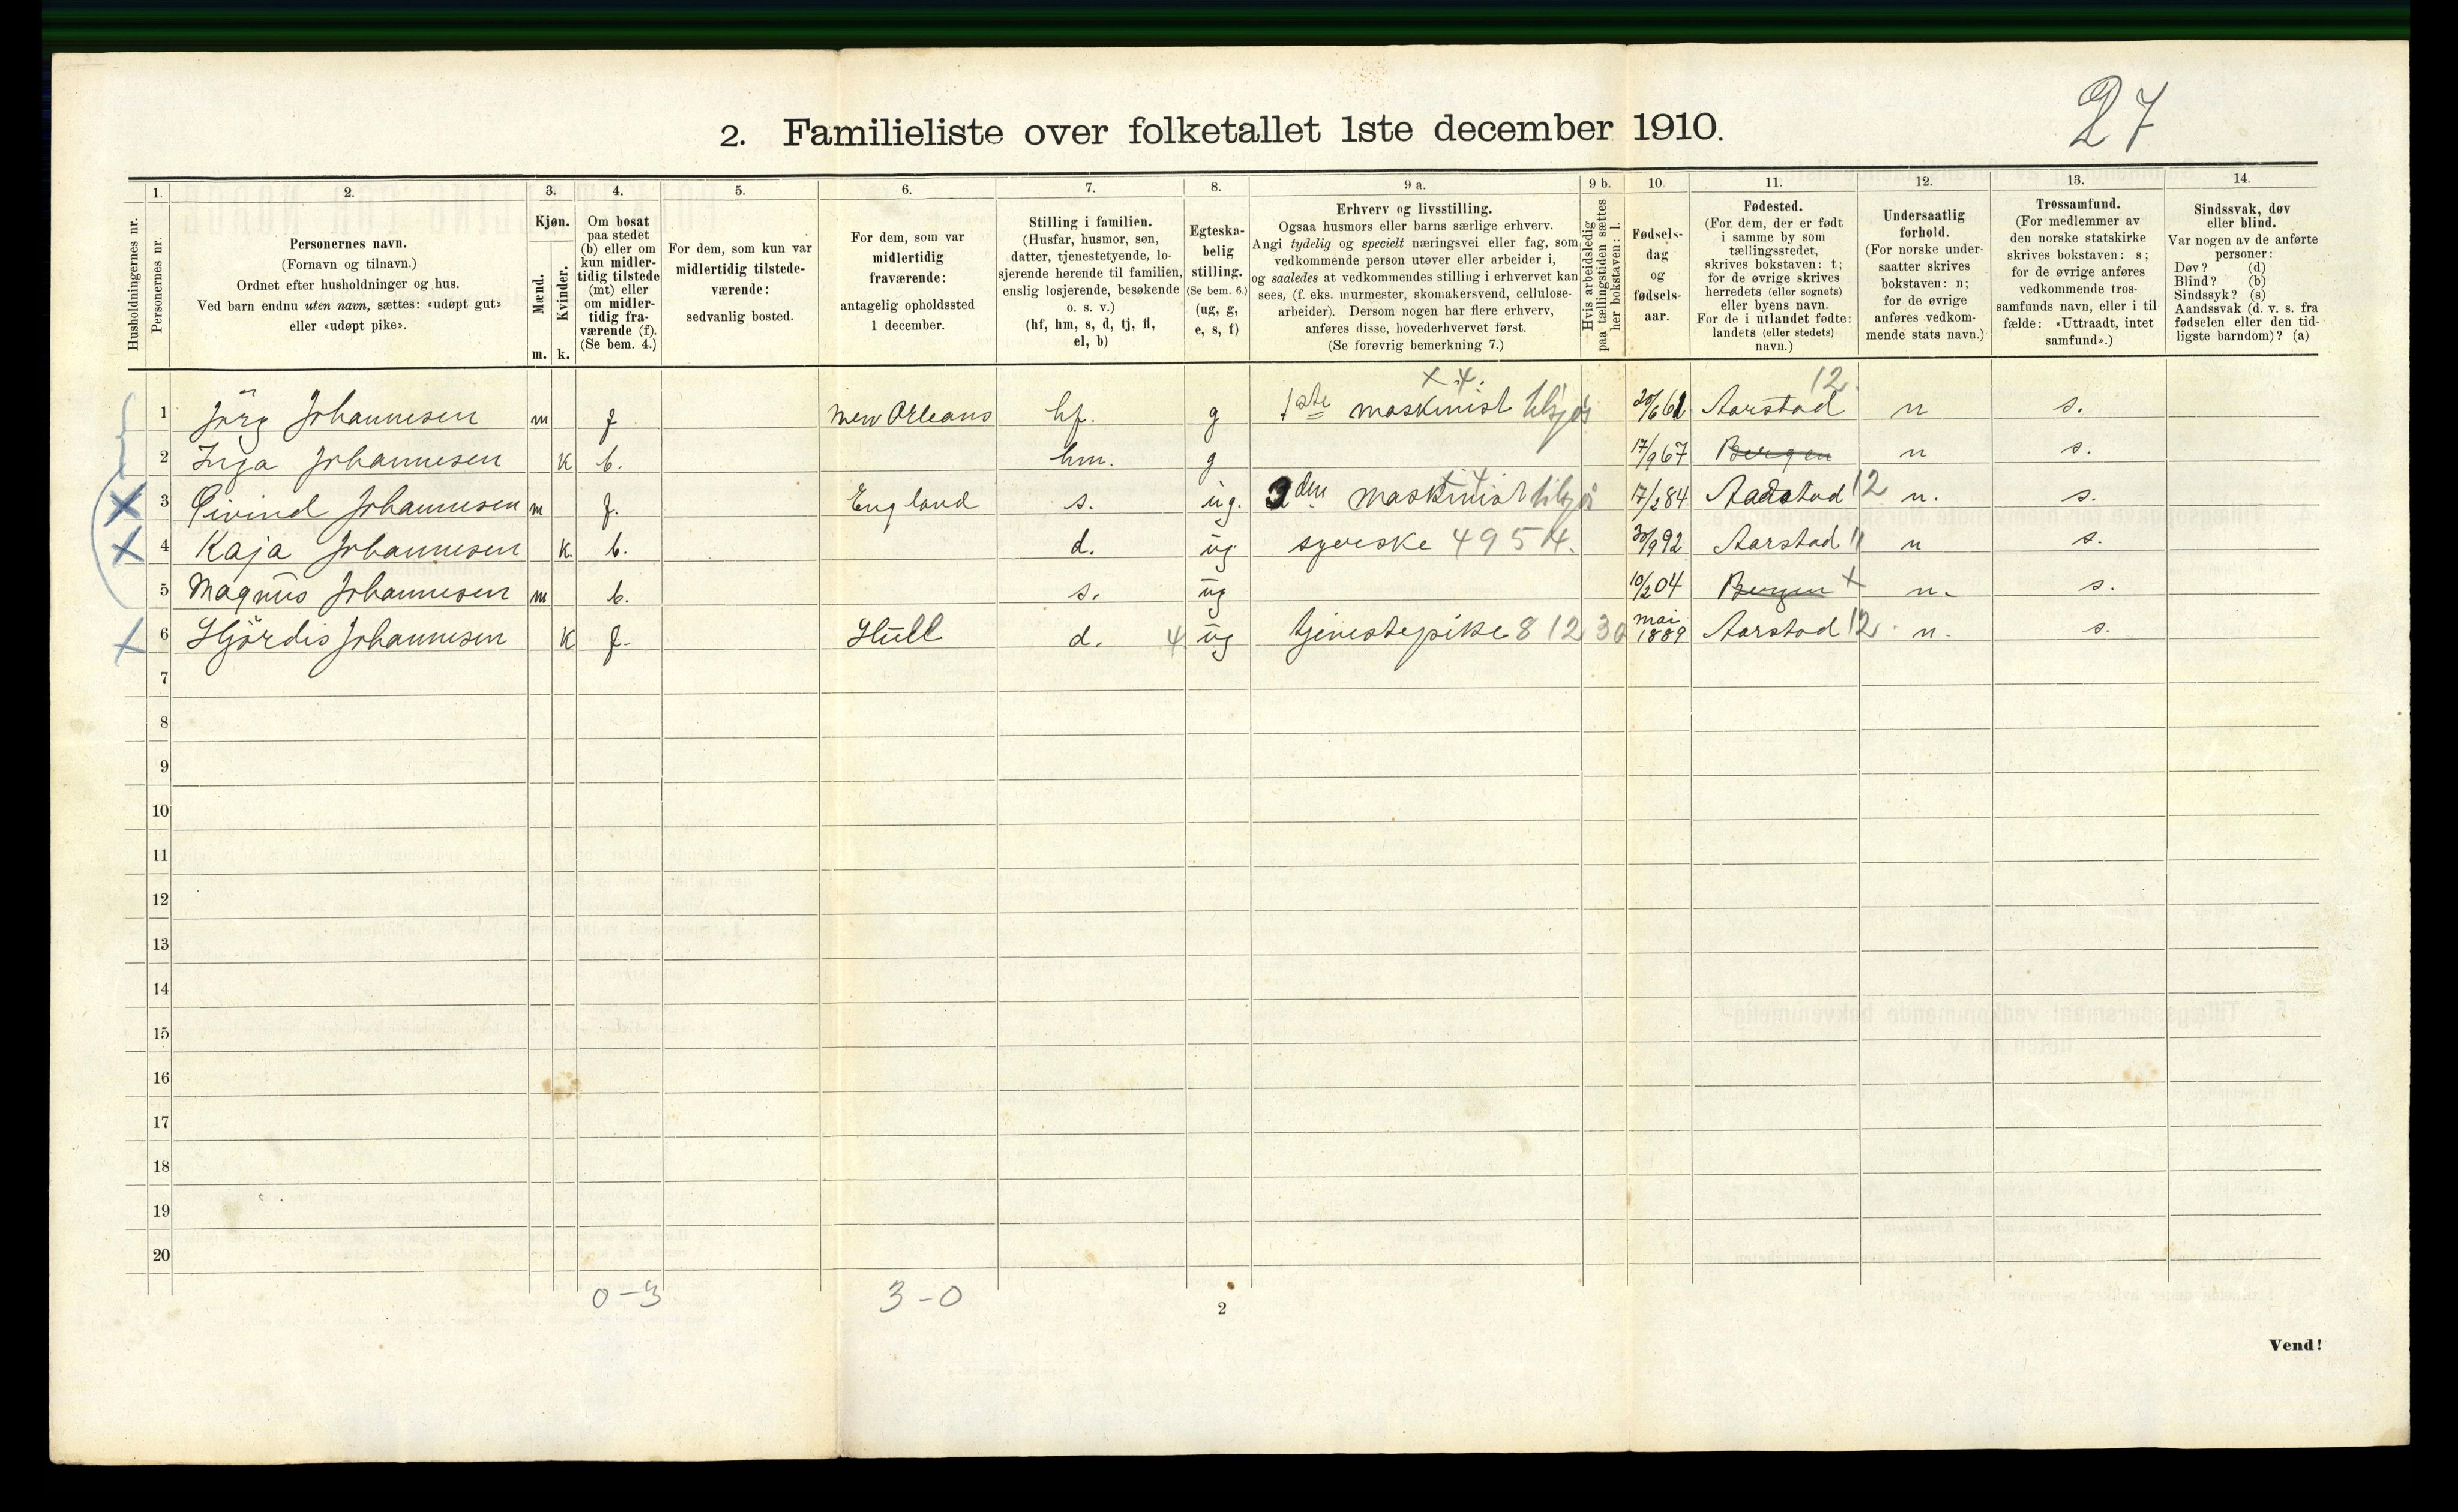 27
2. Familieliste over folketallet 1ste december 1910.
Husholdningernes nr.
1. Personernes nr.
2. Personernes navn. (Fornavn og tilnavn.) Ordnet efter husholdninger og hus. Ved barn endnu uten navn, sættes: «udøpt gut» eller «udøpt pike».
3. Kjøn. Mænd. m. Kvinder. k.
4. Om bosat paa stedet (b) eller om kun midlertidig tilstede (mt) eller om midlertidig fraværende (f). (Se bem. 4.)
5. For dem, som kun var midlertidig tilstedeværende: sedvanlig bosted.
6. For dem, som var midlertidig fraværende: antagelig opholdssted 1 december.
7. Stilling i familien. (Husfar, husmor, søn, datter, tjenestetyende, losjerende hørende til familien, enslig losjerende, besøkende o. s. v.) (hf, hm, s, d, tj, fl, el, b)
8. Egteskabelig stilling. (Se bem. 6.) (ug, g, e, s, f)
9 a. Erhverv og livsstilling. Ogsaa husmors eller barns særlige erhverv. Angi tydelig og specielt næringsvei eller fag, som vedkommende person utøver eller arbeider i, og saaledes at vedkommendes stilling i erhvervet kan sees, (f. eks. murmester, skomakersvend, cellulosearbeider). Dersom nogen har flere erhverv, anføres disse, hovederhvervet først. (Se forøvrig bemerkning 7.)
9 b. Hvis arbeidsledig paa tællingstiden sættes her bokstaven: l.
10. Fødselsdag og fødselsaar.
11. Fødested. (For dem, der er født i samme by som tællingsstedet, skrives bokstaven: t; for de øvrige skrives herredets (eller sognets) eller byens navn. For de i utlandet fødte: landets (eller stedets) navn.)
12. Undersaatlig forhold. (For norske undersaatter skrives bokstaven: n; for de øvrige anføres vedkommende stats navn.)
13. Trossamfund. (For medlemmer av den norske statskirke skrives bokstaven: s; for de øvrige anføres vedkommende trossamfunds navn, eller i tilfælde: «Uttraadt, intet samfund».)
14. Sindssvak, døv eller blind. Var nogen av de anførte personer: Døv? (d) Blind? (b) Sindssyk? (s) Aandssvak (d. v. s. fra fødselen eller den tidligste barndom)? (a)
1 Jörg Johannesen m f New Orleans hf. g 1ste maskinist x 4. 20/6 61 Aarstad 12 n s.
2 Inga Johannesen k b. hm. g 17/9 67 Bergen n s.
3 Øivind Johannesen m f. England s. ug. 2den maskinist 17/2 84 Aarstad 12 n. s.
4 Kaja Johannesen k b. d. ug syerske 4954. 30/9 92 Aarstad 11 n s.
5 Magnus Johannesen m b. s. ug 10/2 04 Bergen x n. s.
6 Hjördis Johannesen k f. Hull d. 4 ug tjenestepike 8 12 30 mai 1889 Aarstad 12. n. s.
7
8
9
10
11
12
13
14
15
16
17
18
19
20
0-3 3-0
2
Vend!